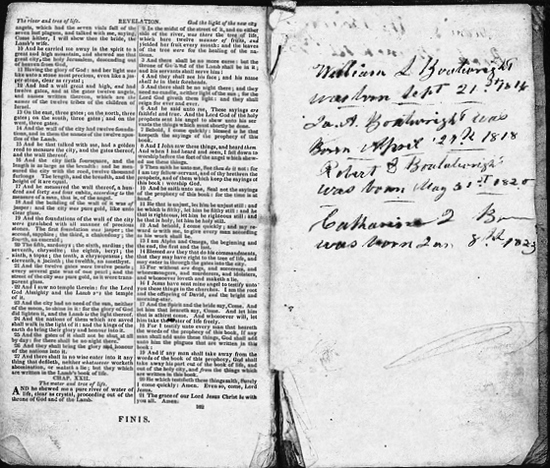 The river and tree of life.
REVELATION.
God the light of the new city
angels, which had the seven vials full of the
seven last plagues, and talked with me, saying,
Come hither, I will shew thee the bride, the
Lamb's wife.
10 And he carried me away in the spirit to a
great and high mountain, and shewed me that
great city, the holy Jerusalem, descending out
of heaven from God,
11 Having the glory of God: and her light was
like unto a stone most precious, even like a jas-
per stone, clear as crystal;
12 And had a wall great and high, and had
twelve gates, and at the gates twelve angels,
and names written thereon, which are the
names of the twelve tribes of the children of
Israel.
13 On the east, three gates; on the north, three
gates; on the south, three gates; and on the
west, three gates.
14 And the wall of the city had twelve founda-
tions, and in them the names of the twelve apos-
tles of the Lamb.
15 And he that talked with me, had a golden
reed to measure the city, and the gates thereof,
and the wall thereof.
16 And the city lieth foursquare, and the
length is as large as the breadth: and he mea-
sured the city with the reed, twelve thousand
furlongs. The length, and the breadth, and the
height of it are equal.
17 And he measured the wall thereof, a hun-
dred and forty and four cubits, according to the
measure of a man, that is, of the angel.
18 And the building of the wall of it was of
jasper: and the city was pure gold, like unto
clear glass.
19 And the foundations of the wall of the city
were garnished with all manner of precious
stones. The first foundation was jasper; the
second, sapphire; the third, a chalcedony; the
fourth, an emerald;
20 The fifth, sardonyx; the sixth, sardius; the
seventh, chrysolite; the eighth, beryl; the
ninth, a topaz; the tenth, a chrysoprasus; the
eleventh, a jacinth; the twelfth, an amethyst.
21 And the twelve gates were twelve pearls;
every several gate was of one pearl: and the
street of the city was pure gold, as it were trans-
parent glass.
22 And I saw no temple therein: for the Lord
God Almighty and the Lamb are the temple
of it.
23 And the city had no need of the sun, neither
of the moon, to shine in it: for the glory of God
did lighten it, and the Lamb is the light thereof.
24 And the nations of them which are saved
shall walk in the light of it: and the kings of the
earth do bring their glory and honour into it.
25 And the gates of it shall not be shut at all
by day: for there shall be no night there.
26 And they shall bring the glory and honour
of the nations into it.
27 And there shall in no wise enter into it any
thing that defileth, neither whatsoever worketh
abomination, or maketh a lie; but they which
are written in the Lamb's book of life.
CHAP. XXII.
The water and tree of life.
AND he shewed me a pure river of water of
life, clear as crystal, proceeding out of the
throne of God and of the Lamb.
2 In the midst of the street of it, and on either
side of the river, was there the tree of life,
which bare twelve manner of fruits, and
yielded her fruit every month: and the leaves
of the tree were for the healing of the na-
tions.
3 And there shall be no more curse: but the
throne of God and of the Lamb shall be in it;
and his servants shall serve him:
4 And they shall see his face; and his name
shall be in their foreheads.
5 And there shall be no night there; and they
need no candle, neither light of the sun; for the
Lord God giveth them light: and they shall
reign for ever and ever.
6 And he said unto me, These sayings are
faithful and true. And the Lord God of the holy
prophets sent his angel to shew unto his ser-
vants the things which must shortly be done.
7 Behold, I come quickly: blessed is he that
keepeth the sayings of the prophecy of this
book.
8 And I John saw these things, and heard them.
And when I had heard and seen, I fell down to
worship before the feet of the angel which shew-
ed me these things.
9 Then saith he unto me, See thou do it not: for
I am thy fellow-servant, and of thy brethren the
prophets, and of them which keep the sayings of
this book: worship God.
10 And he saith unto me, Seal not the sayings
of the prophecy of this book: for the time is at
hand.
11 He that is unjust, let him be unjust still: and
he which is filthy, let him be filthy still: and he
that is righteous, let him be righteous still: and
he that is holy, let him be holy still.
12 And behold, I come quickly; and my re-
ward is with me, to give every man according
as his work shall be.
13 I am Alpha and Omega, the beginning and
the end, the first and the last.
14 Blessed are they that do his commandments,
that they may have right to the tree of life, and
may enter in through the gates into the city.
15 For without are dogs, and sorcerers, and
whoremongers, and murderers, and idolaters,
and whosoever loveth and maketh a lie.
16 I Jesus have sent mine angel to testify unto
you these things in the churches. I am the root
and the offspring of David, and the bright and
morning-star.
17 And the Spirit and the bride say, Come. And
let him that heareth say, Come. And let him
that is athirst come. And whosoever will, let
him take the water of life freely.
18 For I testify unto every man that heareth
the words of the prophecy of this book, If any
man shall add unto these things, God shall add
unto him the plagues that are written in this
book:
19 And if any man shall take away from the
words of the book of this prophecy, God shall
take away his part out of the book of life, and
out of the holy city, and from the things which
are written in this book.
20 He which testifieth these things saith, Surely
I come quickly: Amen. Even so, come, Lord
Jesus.
21 The grace of our Lord Jesus Christ be with
you all. Amen.
FINIS.
William L Boatwright
was born Sept 21st
A. Boatwright was
Born April 12th 1818
Robert Boatwright
was born May 31st 1820
Catharine B
was born Jan 8th 1823